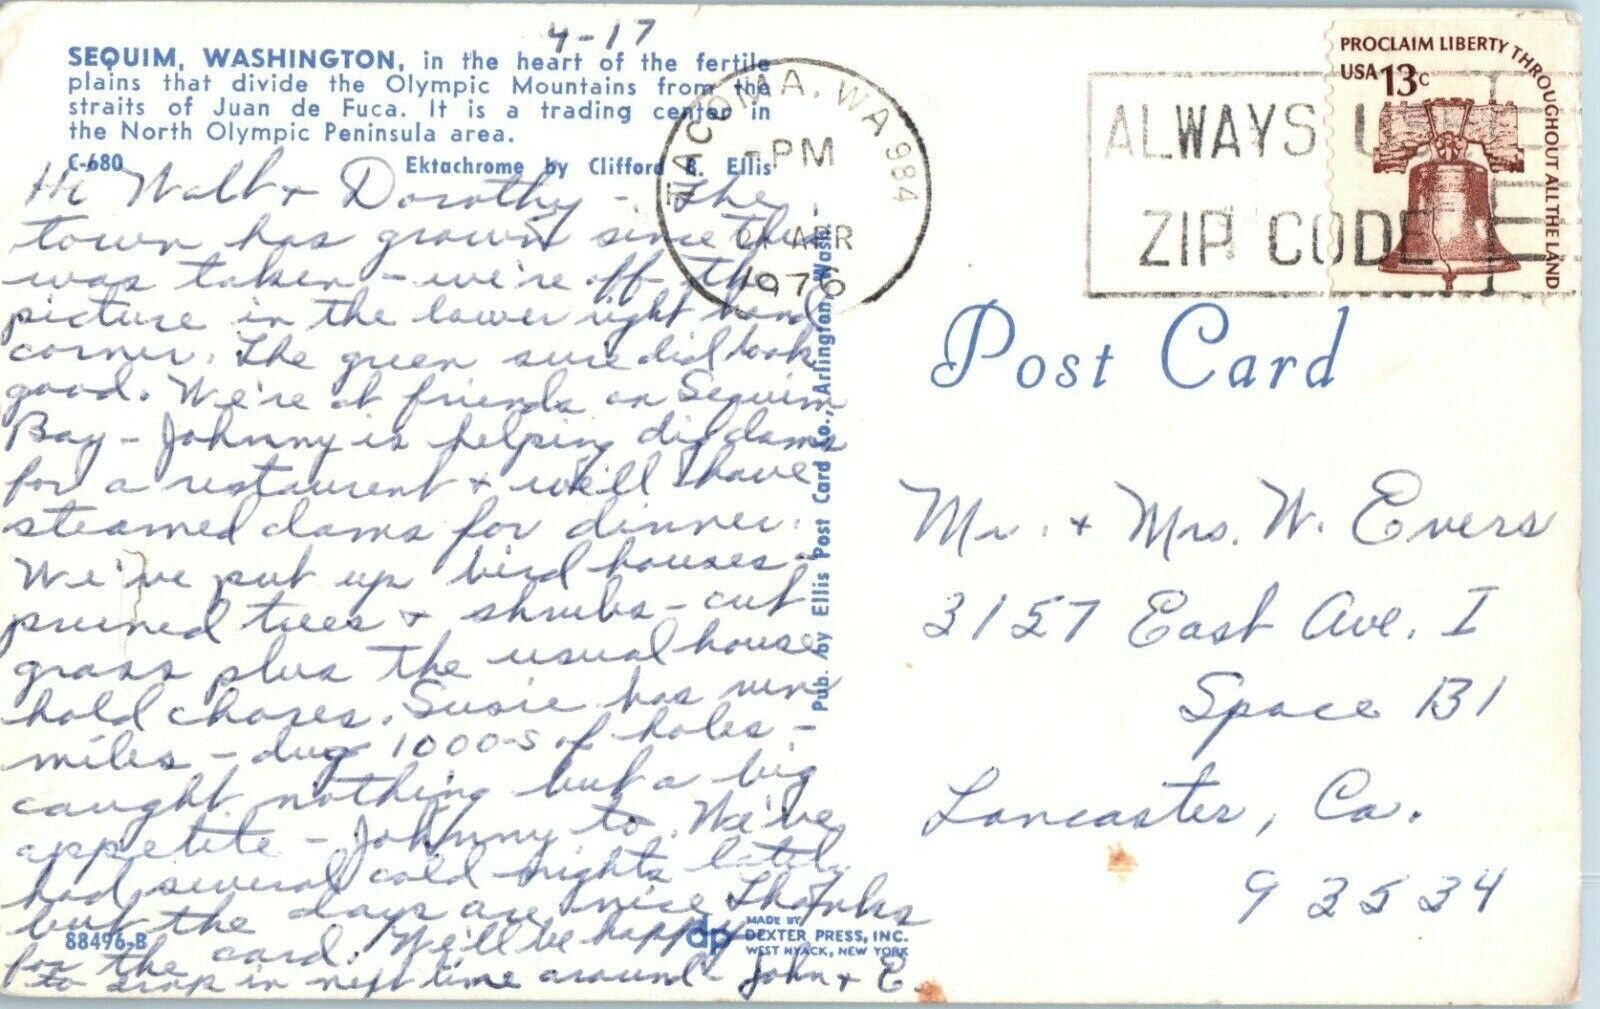 4-17
SEQUIM, WASHINGTON, in the heart of the fertile
plains that divide the Olympic Mountains from the
straits of Juan de Fuca. It is a trading center in
the North Olympic Peninsula area.
C-680 Ektachrome by Clifford B. Ellis
Hi Walt + Dorothy - The
town has grown since this
was taken - we're off the
picture in the lower right hand
corner. The green sure did look
good. We're at friends on Sequim
Bay - Johnny is helping dig clams
for a restaurant + we'll have
steamed clams for dinner.
We've put up bird houses -
pruned trees + shrubs - cut
grass plus the usual house
hold chores. Susie has run
miles - dug 1000-s of holes -
caught nothing but a big
appetite - Johnny to. We've
had several cold nights lately
but the days are nice Thanks
for the card. We'll be happy
to drop in next time around - John + E.
88496-B
dp MADE BY
DEXTER PRESS, INC.
WEST NYACK, NEW YORK
Pub. by Ellis Post Card Co., Arlington, Wash.
TACOMA, WA 984
PM
APR
1976
ALWAYS U
ZIP CODE
PROCLAIM LIBERTY THROUGHOUT ALL THE LAND
USA 13c
Post Card
Mr. + Mrs. W. Evers
3157 East Ave. I
Space B1
Lancaster, Ca.
93534